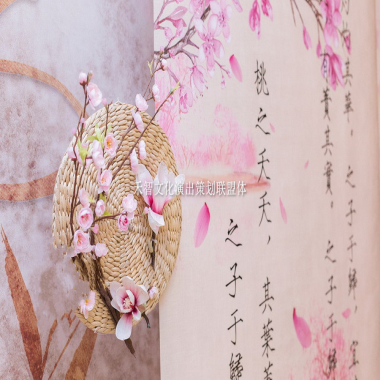 其華。之子于歸,宜
有蕡其實。之子于歸
桃之夭夭,其葉
之子于歸
天智文化演出策划联盟体